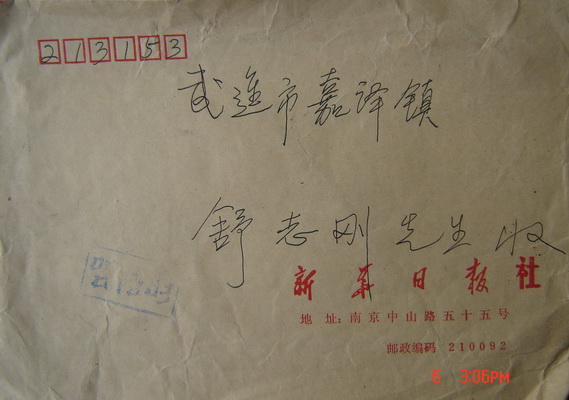 213153
武進市嘉译镇
舒志刚先生收
新华日报社
地址:南京中山路五十五号
邮政编码 210092
6 3:06PM